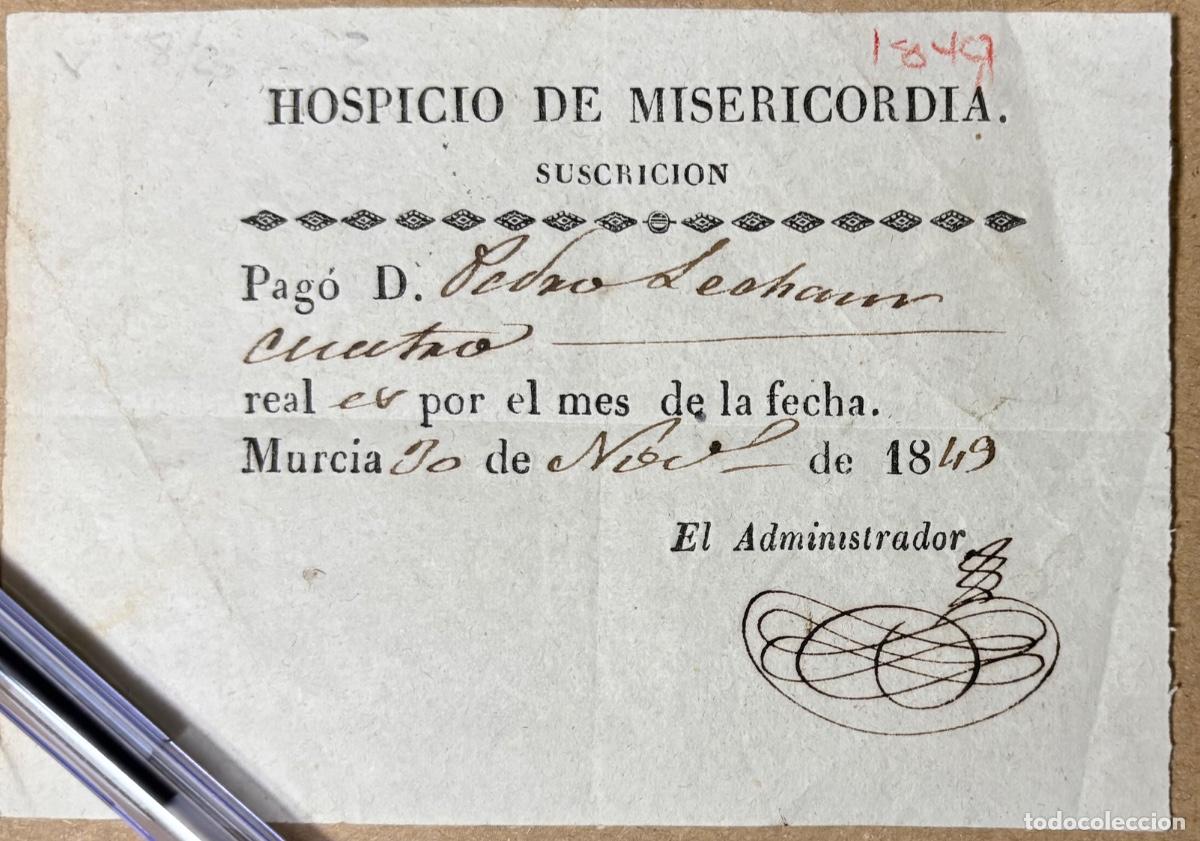 1849
HOSPICIO DE MISERICORDIA.
SUSCRICION
Pagó D. Pedro
cuatro
real es por el mes de la fecha.
Murcia 30 de Nov.e de 1849
El Administrador
todocoleccion